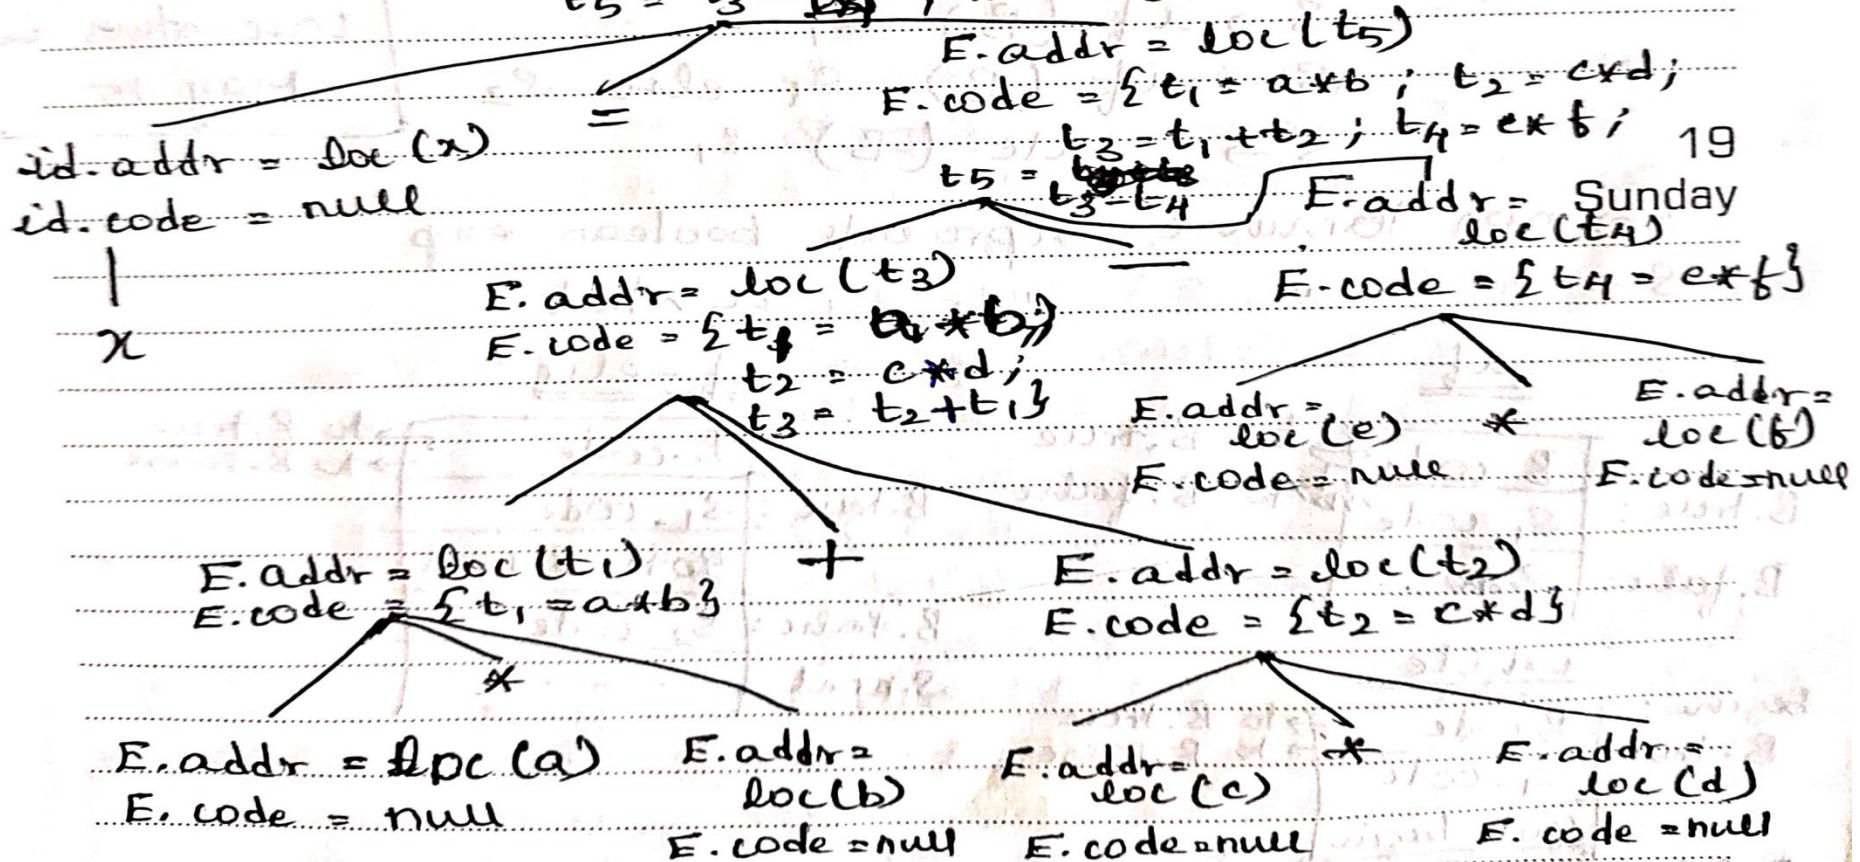 t5 = t3
E.addr = loc(t5)
E.code = { t1 = a*b ; t2 = c*d;
t3 = t1 + t2 ; t4 = e*f;
t5 = t3-t4
=
id.addr = loc(x)
id.code = null
x
19
Sunday
E.addr = loc(t3)
E.code = { t1 = a*b;
t2 = c*d;
t3 = t2+t1}
—
E.addr =
loc(t4)
E.code = { t4 = e*f}
E.addr =
loc(e)
E.code = null
*
E.addr =
loc(f)
E.code=null
E.addr = loc(t1)
E.code = { t1 = a*b}
+
E.addr = loc(t2)
E.code = {t2 = c*d}
E.addr = loc(a)
E.code = null
*
E.addr =
loc(b)
E.code = null
E.addr =
loc(c)
E.code=null
*
E.addr =
loc(d)
E.code = null